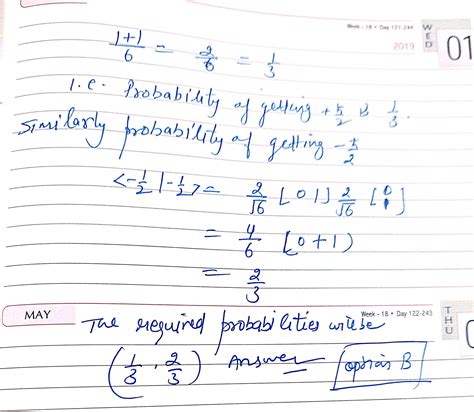 Week - 18 • Day 121-244
WED
2019
01
1+1/6 = 2/6 = 1/3
i.e. Probability of getting +ħ/2 is 1/3.
Similarly probability of getting -ħ/2
<-1/2|-1/2> = 2/√6 [0 1] 2/√6 [0 1]
= 4/6 [0+1)
= 2/3
MAY
Week - 18 • Day 122-243
THU
The required probabilities will be
(1/3, 2/3) Answer option B